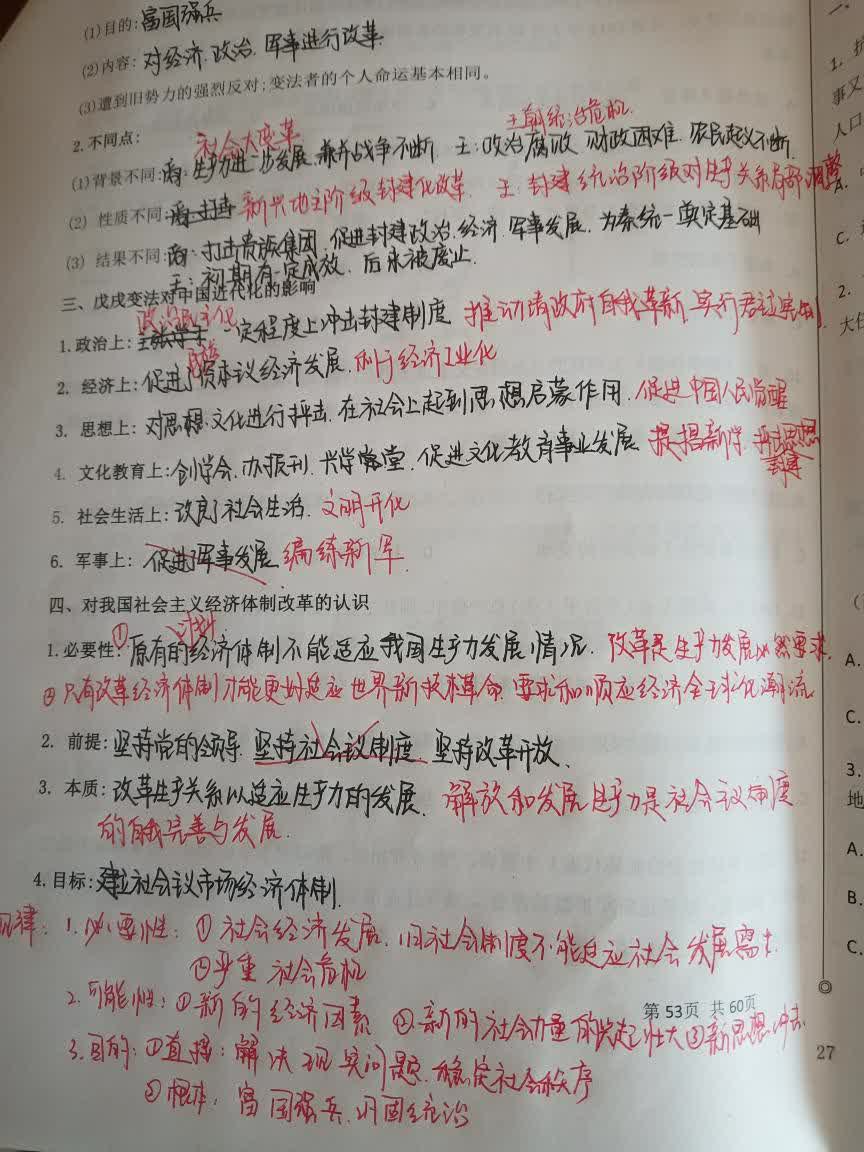 (1)目的:富国强兵
(2)内容:对经济、政治、军事进行改革.
(3)遭到旧势力的强烈反对;变法者的个人命运基本相同。
2.不同点:
社会大变革
王朝统治危机.
(1)背景不同:商:生产力进一步发展,兼并战争不断. 王:政治腐败 财政困难. 农民起义不断.
(2) 性质不同: 新兴地主阶级封建化改革. 王:封建统治阶级对生产关系局部调整
(3) 结果不同:商:打击贵族集团,促进封建政治、经济、军事发展,为秦统一奠定基础
王:初期有一定成效,后来被废止.
三、戊戌变法对中国近代化的影响
政治民主化
1.政治上: 一定程度上冲击封建制度 推动清政府自我革新,实行君主立宪制
民族
2. 经济上:促进了资本主义经济发展.利于经济工业化
3. 思想上: 对思想、文化进行抨击.在社会上起到思想启蒙作用.促进中国人民觉醒
4. 文化教育上:创学会、办报刊、兴学堂.促进文化教育事业发展 提倡新学,
5. 社会生活上:改良了社会生活.文明开化
6. 军事上: 促进军事发展 编练新军.
四、对我国社会主义经济体制改革的认识
计划
1.必要性:①原有的经济体制不能适应我国生产力发展情况. 改革是生产力发展必然要求.
②只有改革经济体制才能更好适应世界新技术革命,要求和顺应经济全球化潮流
2. 前提:坚持党的领导.坚持社会主义制度.坚持改革开放.
3. 本质:改革生产关系以适应生产力的发展. 解放和发展生产力是社会主义制度
的自我完善与发展.
4.目标:建立社会主义市场经济体制.
规律: 1.必要性:①社会经济发展.旧社会制度不能适应社会发展需求.
②严重社会危机
2.可能性:①新的经济因素 ②新的社会力量的兴起壮大③新思想冲击
第 53页 共 60页
3.目的:①直接:解决现实问题、稳定社会秩序
②根本:富国强兵、巩固统治
27
1.
事又
人口
A.
C.
2.
A.
C.
3.
地
A.
B.
C.